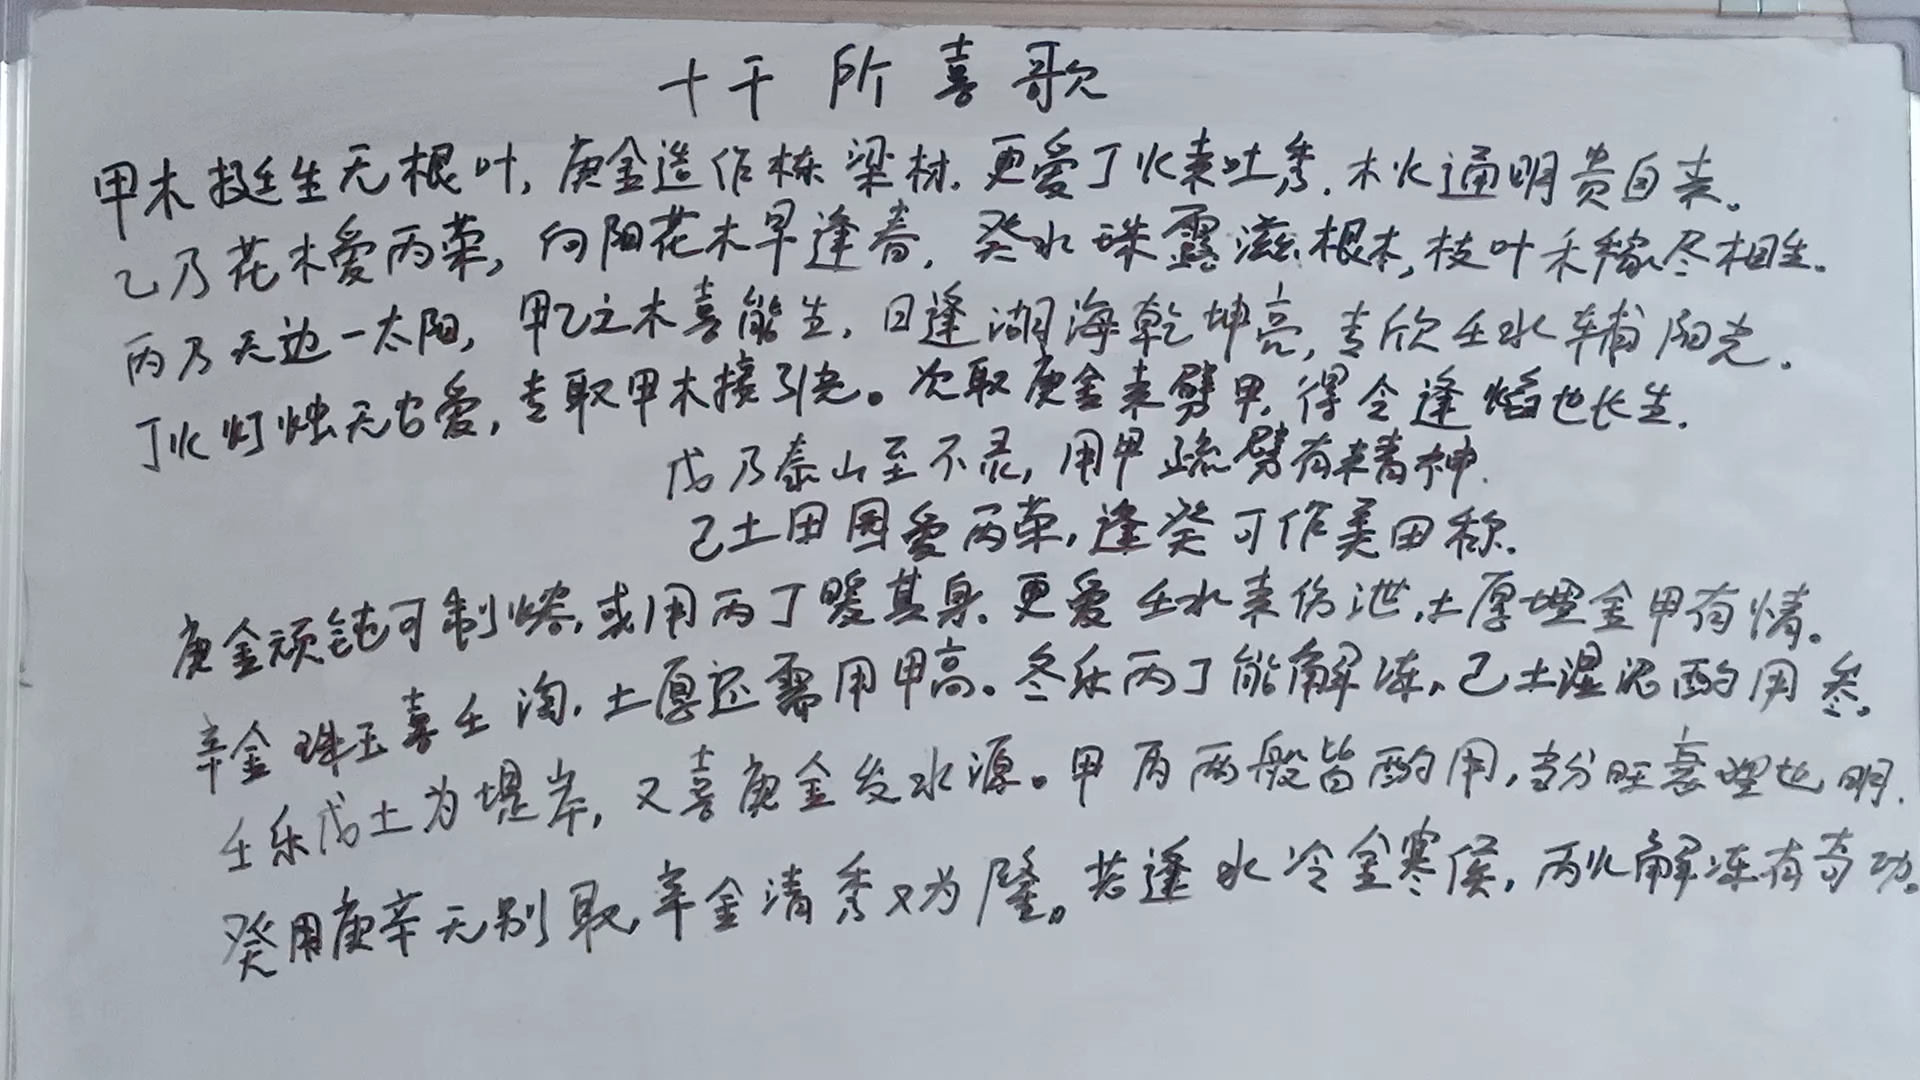 十干所喜歌
甲木挺生无根叶,庚金造作栋梁材.更爱丁火来吐秀.木火通明贵自来。
乙乃花木爱丙荣,向阳花木早逢春,癸水珠露滋根本,枝叶禾稼尽相生.
丙乃天边一太阳,甲乙之木喜能生,日逢湖海乾坤亮,专欣壬水辅阳光.
丁火灯烛无占爱,专取甲木接引光。次取庚金来劈甲,得令逢焰也长生.
戊乃泰山至不灵,用甲疏劈有精神.
己土田园爱丙荣,逢癸可作美田称.
庚金顽钝可制熔,或用丙丁暖其身.更爱壬水来伤泄,土厚埋金甲有情。
辛金珠玉喜壬淘.土厚还需用甲高。冬乐丙丁能解冻,己土湿泥酌用参。
壬乐戊土为堤岸,又喜庚金发水源。甲丙两般皆酌用,当分旺衰理也明.
癸用庚辛无别取,辛金清秀又为隆。若逢水冷金寒候,丙火解冻有奇功。